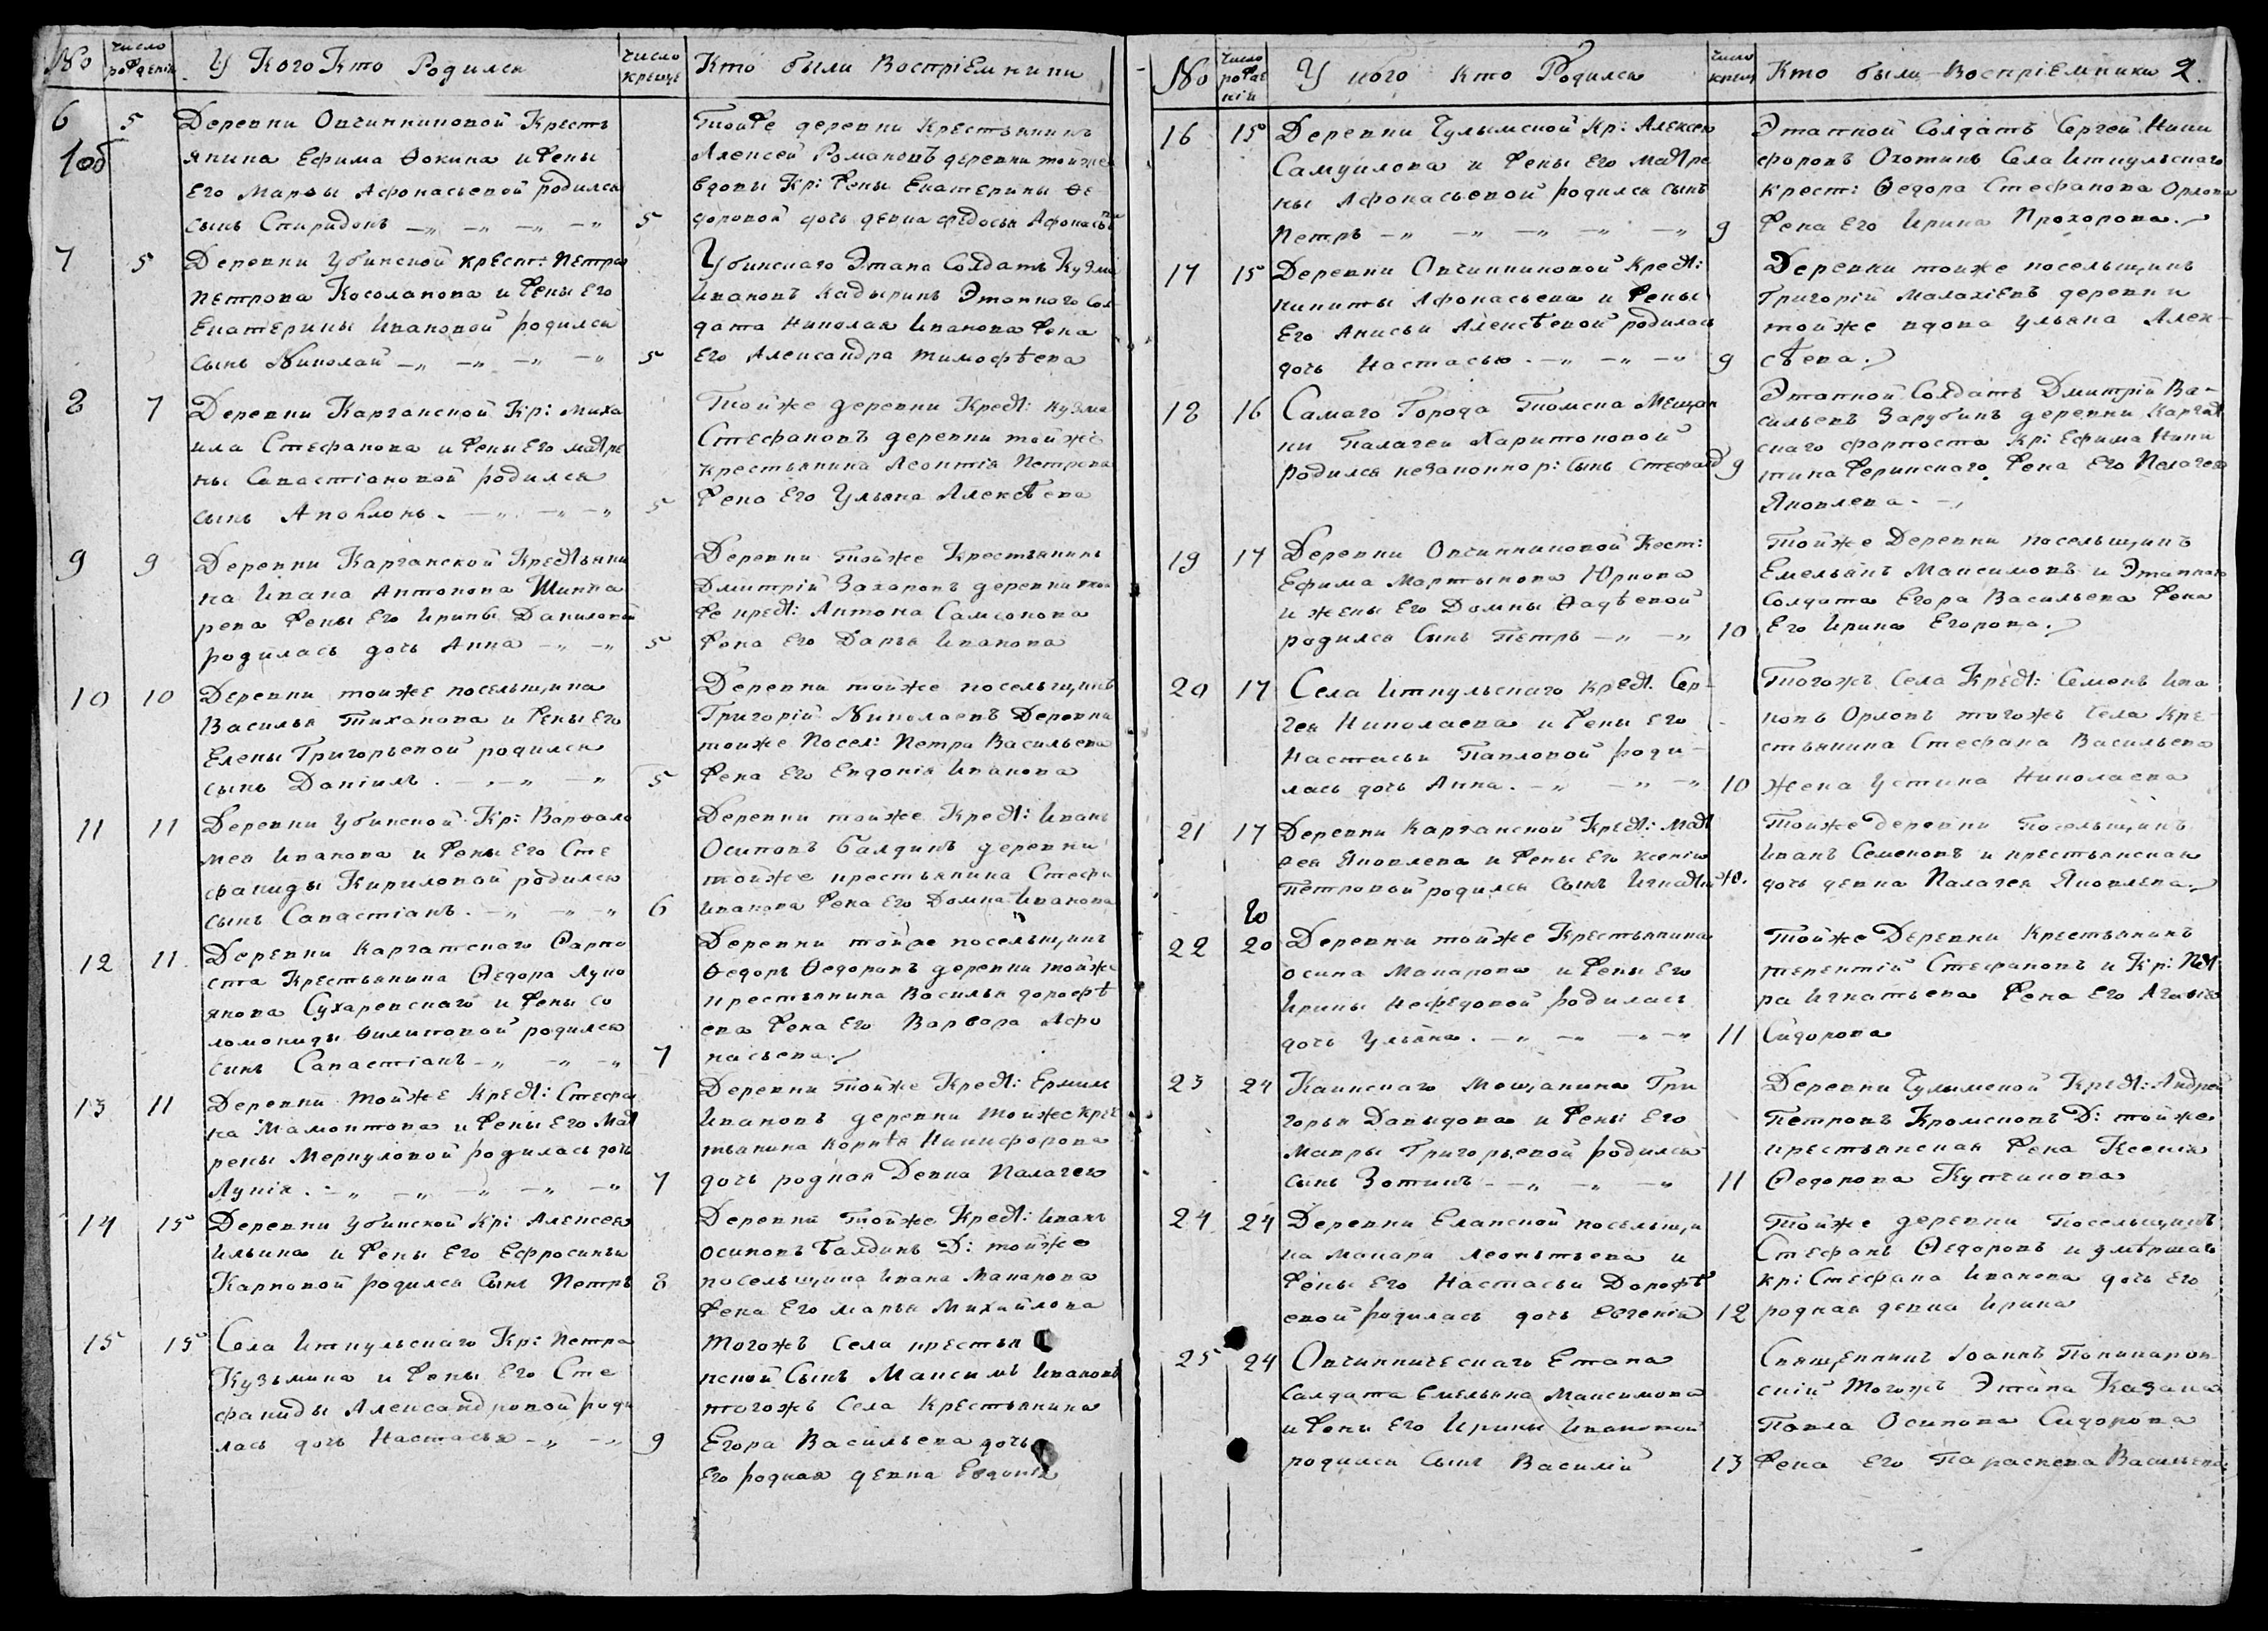 No
число рожденія
У Кого Кто Родился
число креще
Кто были Воспріемники
6 5 Деревни Овчинниковой Кресть
10б
янина Ефима Ѳокина и жены
Его Марѳы Афонасьевой родился
сынъ Спиридонъ 5
Тойже деревни Крестьянинъ
Алексей Романовъ деревни тойже
вдовы Кр: жены Екатерины Ѳе
доровой дочь девка Федосья Афонасьева
7 5 Деревни Убинской крест: Петра
Петрова Косолапова и жены Его
Екатерины Ивановой родился
сынъ Николай 5
Убинскаго Этапа Солдатъ Кузма
Ивановъ Кадыринъ Этапного Сол
дата Николая Иванова жена
Его Александра Тимофѣева
8 7 Деревни Карганской Кр: Миха
ила Стефанова и жены Его Матре
ны Савастіановой родился
сынъ Аполлонъ. 5
Тойже деревни Крест: Кузма
Стефановъ деревни тойже
крестьянина Леонтія Петрова
жена Его Ульяна Алексѣева
9 9 Деревни Карганской Крестьяни
на Ивана Антонова Шинка
рева жены Его Ирины Даниловой
родилась дочь Анна 5
Деревни тойже Крестьянинъ
Дмитрій Захаровъ деревни той
же крест: Антона Самсонова
жена Его Дарья Иванова
10 10 Деревни тойже посельщика
Василья Тиханова и жены Его
Елены Григорьевой родился
сынъ Даніилъ. 5
Деревни тойже посельщикъ
Григорій Николаевъ Деревни
тойже Посел: Петра Васильева
жена Его Евдокія Иванова
11 11 Деревни Убинской Кр: Варѳоло
мея Иванова и жены Его Сте
фаниды Кириловой родился
сынъ Савастіанъ. 6
Деревни тойже Крест: Иванъ
Осиповъ Балдинъ деревни
тойже крестьянина Стефа
Иванова жена Его Домна Иванова
12 11 Деревни Каргатскаго Фарпо
ста Крестьянина Ѳедора Луко
янова Сухаревскаго и жены Со
ломониды Филиповой родился
сынъ Савастіанъ 7
Деревни тойже посельщикъ
Ѳедоръ Ѳедоровъ деревни тойже
крестьянина Василья дорофѣ
ева жена Его Варвара Афо
насьева.
13 11 Деревни тойже Крест: Стефа
на Мамонтова и жены Его Мат
рены Меркуловой родилась дочь
Лукія. 7
Деревни тойже Крест: Ермилъ
Ивановъ деревни тойже крес
тьянина Корнѣя Никифорова
дочь родная Девка Палагея
14 15 Деревни Убинской Кр: Алексея
Ильина и жены Его Ефросиньи
Карповой родился Сынъ Петръ 8
Деревни тойже Крест: Иванъ
осиповъ Балдинъ Д: тойже
посельщика Ивана Макарова
жена Его марья Михайлова
15 15 Села Иткульскаго Кр: Петра
Кузьмина и жены Его Сте
фаниды Александровой роди
лась дочь Настасья 9
Тогожъ Села крестья
нской Сынъ Максимъ Ивановъ
тогожъ Села Крестьянина
Егора Васильева дочь
Его родная девка Евдокія
No
число рожденія
У кого кто Родился
число крещ
Кто были Воспріемники 2.
16 15 Деревни Чулымской Кр: Алексея
Самуилова и жены Его Матре
ны Афонасьевой родился сынъ
Петръ 9
Этапной Солдатъ Сергей Ники
форовъ Охотинъ Села Иткульскаго
крест: Ѳедора Стефанова Орлова
жена Его Ирина Прохорова.
17 15 Деревни Овчинниковой Крест:
Никиты Афонасьева и жены
Его Анисьи Алексѣевой родилась
дочь Настасья. 9
Деревни тойже посельщикъ
Григорій Малахіевъ деревни
тойже вдова Ульяна Алек-
сѣева.
18 16 Самаго Города Томска Мещан
ки Палагеи Харитоновой
родился незаконнор: Сынъ Стефанъ 9
Этапной Солдатъ Дмитрій Ва-
сильевъ Зарубинъ деревни Каргат
скаго фарпоста Кр: Ефима Ники
тина Феринскаго жена Его Пелагея
Яковлева.
19 17 Деревни Овчинниковой Кест:
Ефима Мартынова Юркова
и жены Его Домны Ѳадѣевой
родился Сынъ Петръ 10
Тойже Деревни посельщикъ
Емельянъ Максимовъ и Этапнаго
Солдата Егора Васильева жена
Его Ирина Егорова.
20 17 Села Иткульскаго крест. Сер-
гея Николаева и жены Его
Настасьи Павловой роди-
лась дочь Анна. 10
Тогожъ Села Крест: Семенъ Ива
новъ Орловъ тогожъ Села Кре
стьянина Стефана Васильева
жена Устина Николаева
21 17 Деревни Карганской Крест: Мат
вея Яковлева и жены Его Ксеніи
Петровой родился Сынъ Игнатій 10.
Тойже деревни Посельщикъ
Иванъ Семеновъ и крестьянская
дочь девка Палагея Яковлева.
20
22 20 Деревни тойже Крестьянина
осипа Макарова и жены Его
Ирины Нефедовой родилась
дочь Ульяна. 11
Тойже Деревни Крестьянинъ
терентій Стефановъ и Кр: Пет
ра Игнатьева жена Его Агафія
Сидорова
23 24 Каинскаго Мещанина Гри
горья Давыдова и жены Его
Мавры Григорьевой родился
Сынъ Зотикъ 11
Деревни Чулымской Крест: Андрей
Петровъ Кромсковъ Д: тойже
крестьянская жена Ксенія
Ѳедорова Кутчикова
24 24 Деревни Еланской посельщи
ка Макара Леонтьева и
жены Его Настасьи Дорофѣ
евой родилась дочь Евгенія 12
Тойже деревни Посельщикъ
Стефанъ Ѳедоровъ и умѣршаго
кр: Стефана Иванова дочь Его
родная девка Ирина
25 24 Овчинническаго Етапа
Салдата Емельяна Максимова
и жены Его Ирины Ивановой
родился Сынъ Василій 13
Священникъ Іоаннъ Поникаров
скій Тогожъ Этапа Казака
Павла Осипова Сидорова
жена Его Параскева Васильева: